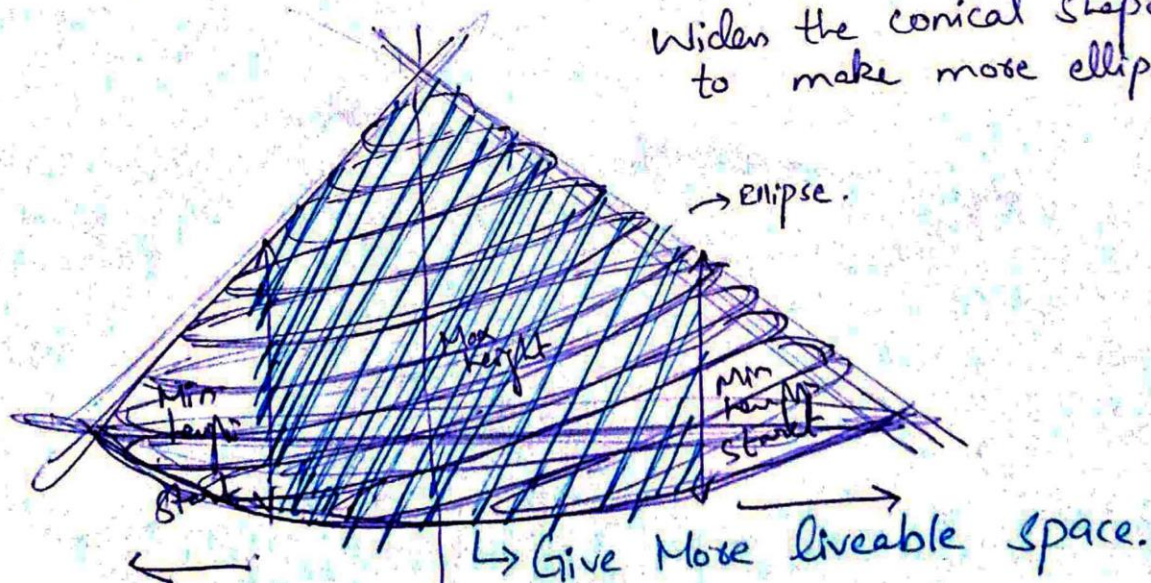 Widen the conical shape
to make more ellip
→ Ellipse.
Max
height
Min
height
start
Min
height
start
↳ Give More liveable space.